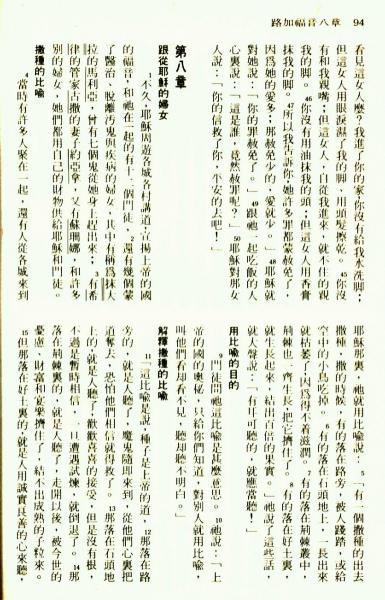 94　路加福音八章
看見這女人麼？我進了你的家你沒有給我水洗脚；
但這女人用眼淚濕了我的脚，用頭髮擦乾。45你沒
有和我親嘴；但這女人，自從我進來，就不住的親
我的脚。46你沒有用油抹我的頭；但這女人用香膏
抹我的脚。47所以我告訴你，她許多罪都蒙赦免了，
因爲她的愛多；那赦免少的，愛就少。」48耶穌就
對她說：「你的罪赦免了。」49跟祂一起吃飯的人
心裏說：「這是誰，竟然赦罪呢？」50耶穌對那女
人說：「你的信救了你，平安的去吧！」
第八章
跟從耶穌的婦女
1不久，耶穌周遊各城各村講道，宣揚上帝的國
的福音，和祂在一起的有十二個門徒，2還有幾個蒙
了醫治、脫離汚鬼與疾病的婦女，其中有稱爲抹大
拉的馬利亞，曾有七個鬼從她身上趕出來；3有希
律的管家古撒的妻子約亞拿，又有蘇珊娜，和許多
別的婦女，她們都用自己的財物供給耶穌和門徒。
撒種的比喩
4當時有許多人聚在一起，還有人從各城來到
耶穌那裏，祂就用比喩說：5「有一個撒種的出去
撒種，撒的時候，有的落在路旁，被人踐踏，或給
空中的小鳥吃掉。6有的落在石頭地上，一長出來
就枯萎了，因爲得不着滋潤。7有的落在荊棘叢中，
荊棘也一齊生長，把它擠住了。8有的落在好土裏，
就生長起來，結出百倍的果實。」祂說了這些話，
就大聲說：「有耳可聽的，就應當聽！」
用比喩的目的
9門徒問祂這比喩是甚麼意思。10祂說：「上
帝的國的奧祕，只給你們知道，對別人就用比喩，
叫他們看却看不見，聽却聽不明白。」
解釋撒種的比喩
11「這比喩是說：種子是上帝的道，12那落在路
旁的，就是人聽了，魔鬼隨即來到，從他們心裏把
道奪去，恐怕他們相信就得救了。13那落在石頭地
上的，就是人聽了，歡歡喜喜的接受，但是沒有根，
不過是暫時相信，一旦遭遇試煉，就倒退了。14那
落在荊棘裏的，就是人聽了，走開以後，被今世的
憂慮、財富和宴樂擠住了，結不出成熟的子粒來。
15但那落在好土裏的，就是人用誠實良善的心來聽，